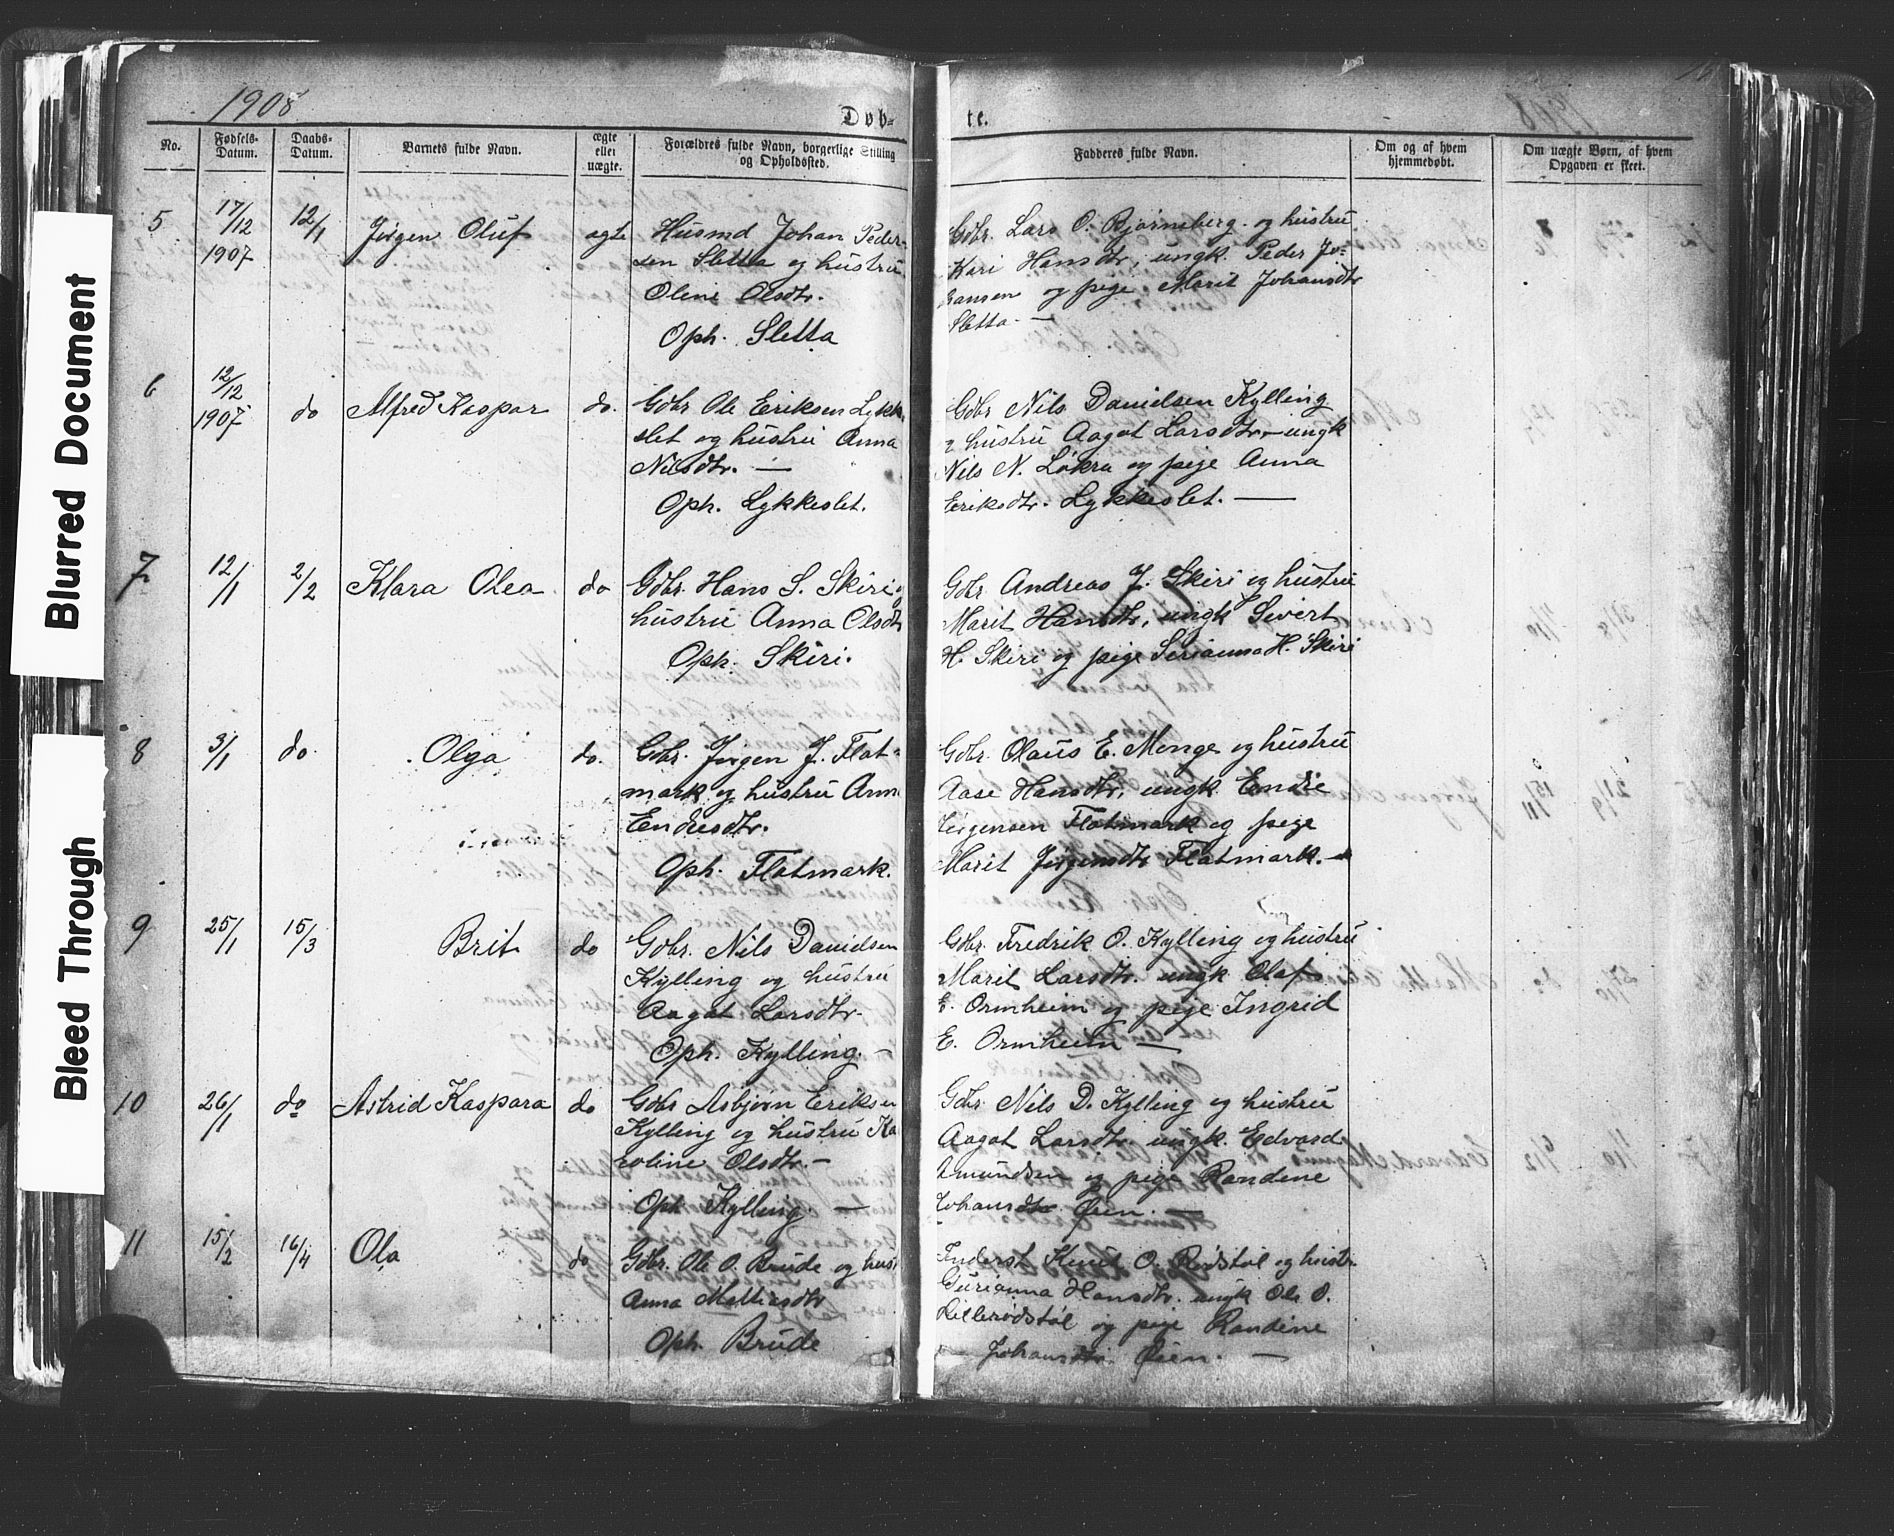 1908
Døb=
te.
1908
No.
Fødsels-
Datum.
Daabs-
Datum.
Barnets fulde Navn.
ægte
eller
uægte.
Forældres fulde Navn, borgerlige Stilling
og Opholdssted.
Fadderes fulde Navn.
Om og af hvem
hjemmedøbt.
Om uægte Børn, af hvem
Opgaven er skeet.
5
17/12
1907
12/1
Jørgen Oluf
ægte
Husmd Johan Peder-
sen Sletta og hustru
Oline Olsdtr.
Oph. Sletta
Gdbr. Lars O. Bjørnsberg og hustru
Kari Hansdtr, ungk. Peder Jo-
hansen og pige Marit Johansdtr
Sletta. —
6
12/12
1907
do
Alfred Kaspar
do.
Gdbr Ole Eriksen Lykk
slet og hustru Anna
Nilsdtr. —
Oph. Lykkeslet.
Gdbr Nils Danielsen Kylling
og hustru Aagot Larsdtr. ungk
Nils N. Løkra og pige Anna
Eriksdtr. Lykkeslet. —
7
12/1
2/2
Klara Olea
do
Gdbr. Hans S. Skiri og
hustru Anna Olsdtr
Oph. Skiri.
Gdbr Andreas J. Skiri og hustru
Marit Hansdtr, ungk Sivert
H. Skiri og pige Serianna H. Skiri
8
3/1
do.
Olga
do.
Gdbr. Jørgen J. Flat-
mark og hustru Anna
Endresdtr.
Oph. Flatmark.
Gdbr. Olaus E. Monge og hustru
Aase Hansdtr, ungk. Endre
Jørgensen Flatmark og pige
Marit Jørgensdtr Flatmark. —
9
25/1
15/3
Brit
do
Gdbr. Nils Danielsen
Kylling og hustru
Aagot Larsdtr.
Oph. Kylling. —
Gdbr. Fredrik O. Kylling og hustru
Marit Larsdtr. ungk Olaf
E. Ormheim og pige Ingrid
E. Ormheim —
10
26/1
do
Astrid Kaspara
do
Gdbr Asbjørn Eriksen
Kylling og hustru Ka
roline Olsdtr. —
Oph Kylling. —
Gdbr. Nils D. Kylling og hustru
Aagot Larsdtr. ungk. Edvard
Amundsen og pige Randine
Johansdtr Øien. —
11
15/2
16/4
Ola
do
Gdbr. Ole O. Brude og hust
Anna Mathiasdtr
Oph. Brude
Inderst Knut O. Rødstøl og hustr
Gurianna Hansdtr. ungk Ole O.
Lillerødstøl og pige Randine
Johansdtr. Øien. —
Blurred Document
Bleed Through